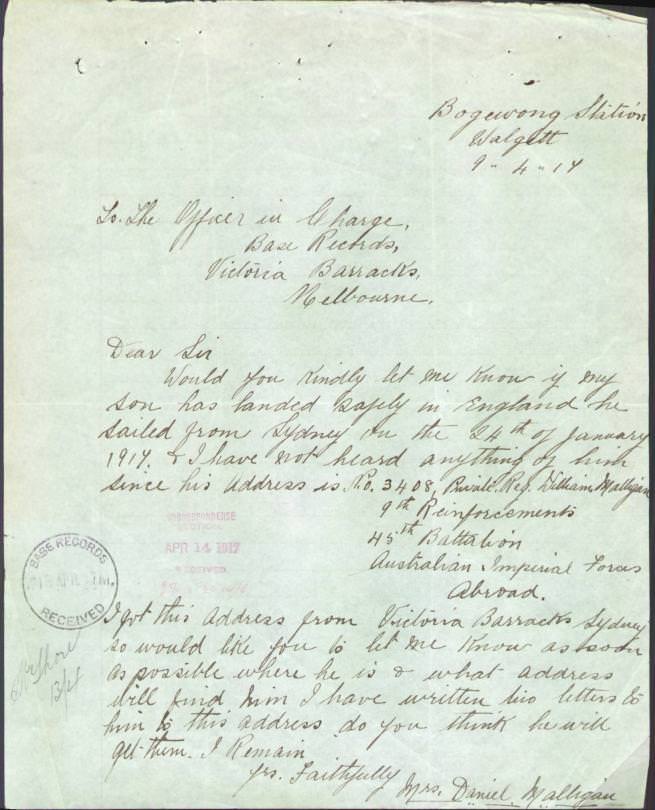 Bogewong Station
Walgett
9 - 4 - 17
To. The Officer in Charge,
Base Records,
Victoria Barracks,
Melbourne.
Dear Sir
Would you kindly let me know if my
son has landed safely in England he
sailed from Sydney on the 24th of January
1917. & I have not heard anything of him
since his address is No. 3408, Private. Reg. William Malligan
9th Reinforcements
45th Battalion
Australian Imperial Forces
Abroad.
CORRESPONDENCE
SECTION
APR 14 1917
RECEIVED
BASE RECORDS
RECEIVED
I got this address from Victoria Barracks Sydney
so would like you to let me know as soon
as possible where he is & what address
will find him I have written two letters to
him to this address do you think he will
get them. I Remain
yrs. Faithfully
Mrs. Daniel Malligan